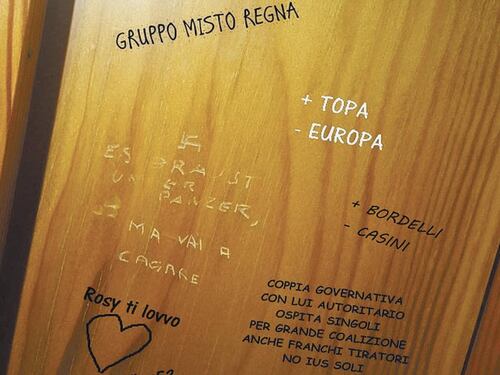 GRUPPO MISTO REGNA
+ TOPA
- EUROPA
ES BRAUST
UNSER
PANZER,
MA VAI A
CAGARE
+ BORDELLI
- CASINI
Rosy ti lovvo
COPPIA GOVERNATIVA
CON LUI AUTORITARIO
OSPITA SINGOLI
PER GRANDE COALIZIONE
ANCHE FRANCHI TIRATORI
NO IUS SOLI